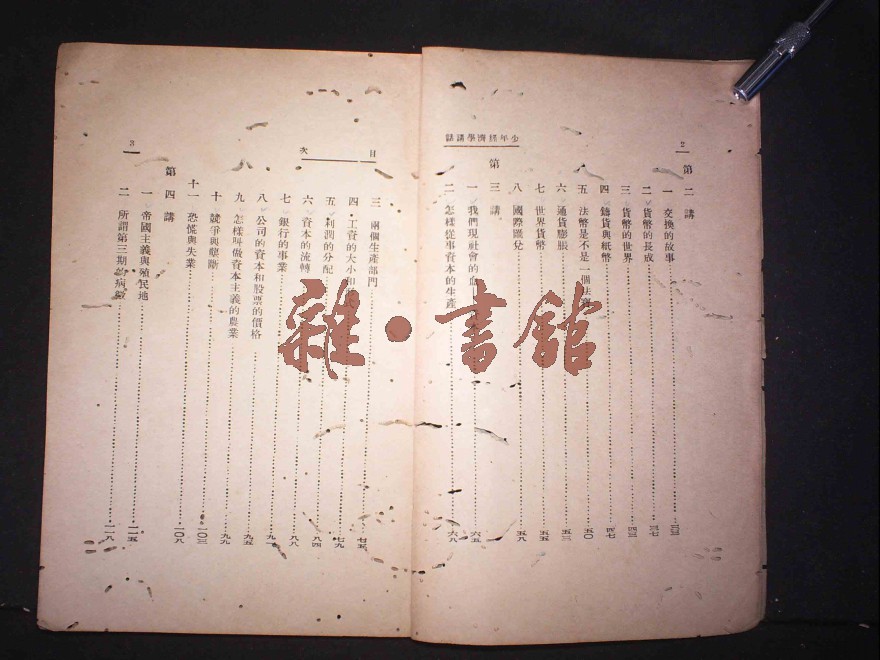 少年經濟學講話
2
第二講
一 交換的故事
二 貨幣的長成 三七
三 貨幣的世界 四三
四 鑄貨與紙幣 四七
五 法幣是不是一個法 五〇
六 通貨膨脹 五三
七 世界貨幣 五五
八 國際匯兌 五八
第三講
一 我們現社會的 六五
二 怎樣從事資本的生產 六八
目次
3
三 兩個生產部門 七五
四 工資的大小和 七九
五 利潤的分配 八四
六 資本的流轉
七 銀行的事業 八八
八 公司的資本和股票的價格
九 怎樣叫做資本主義的農業
十 競爭與壟斷 一〇三
十一 恐慌與失業 一〇八
第四講
一 帝國主義與殖民地 一一五
二 所謂第三期的病 一一八
雜·書館